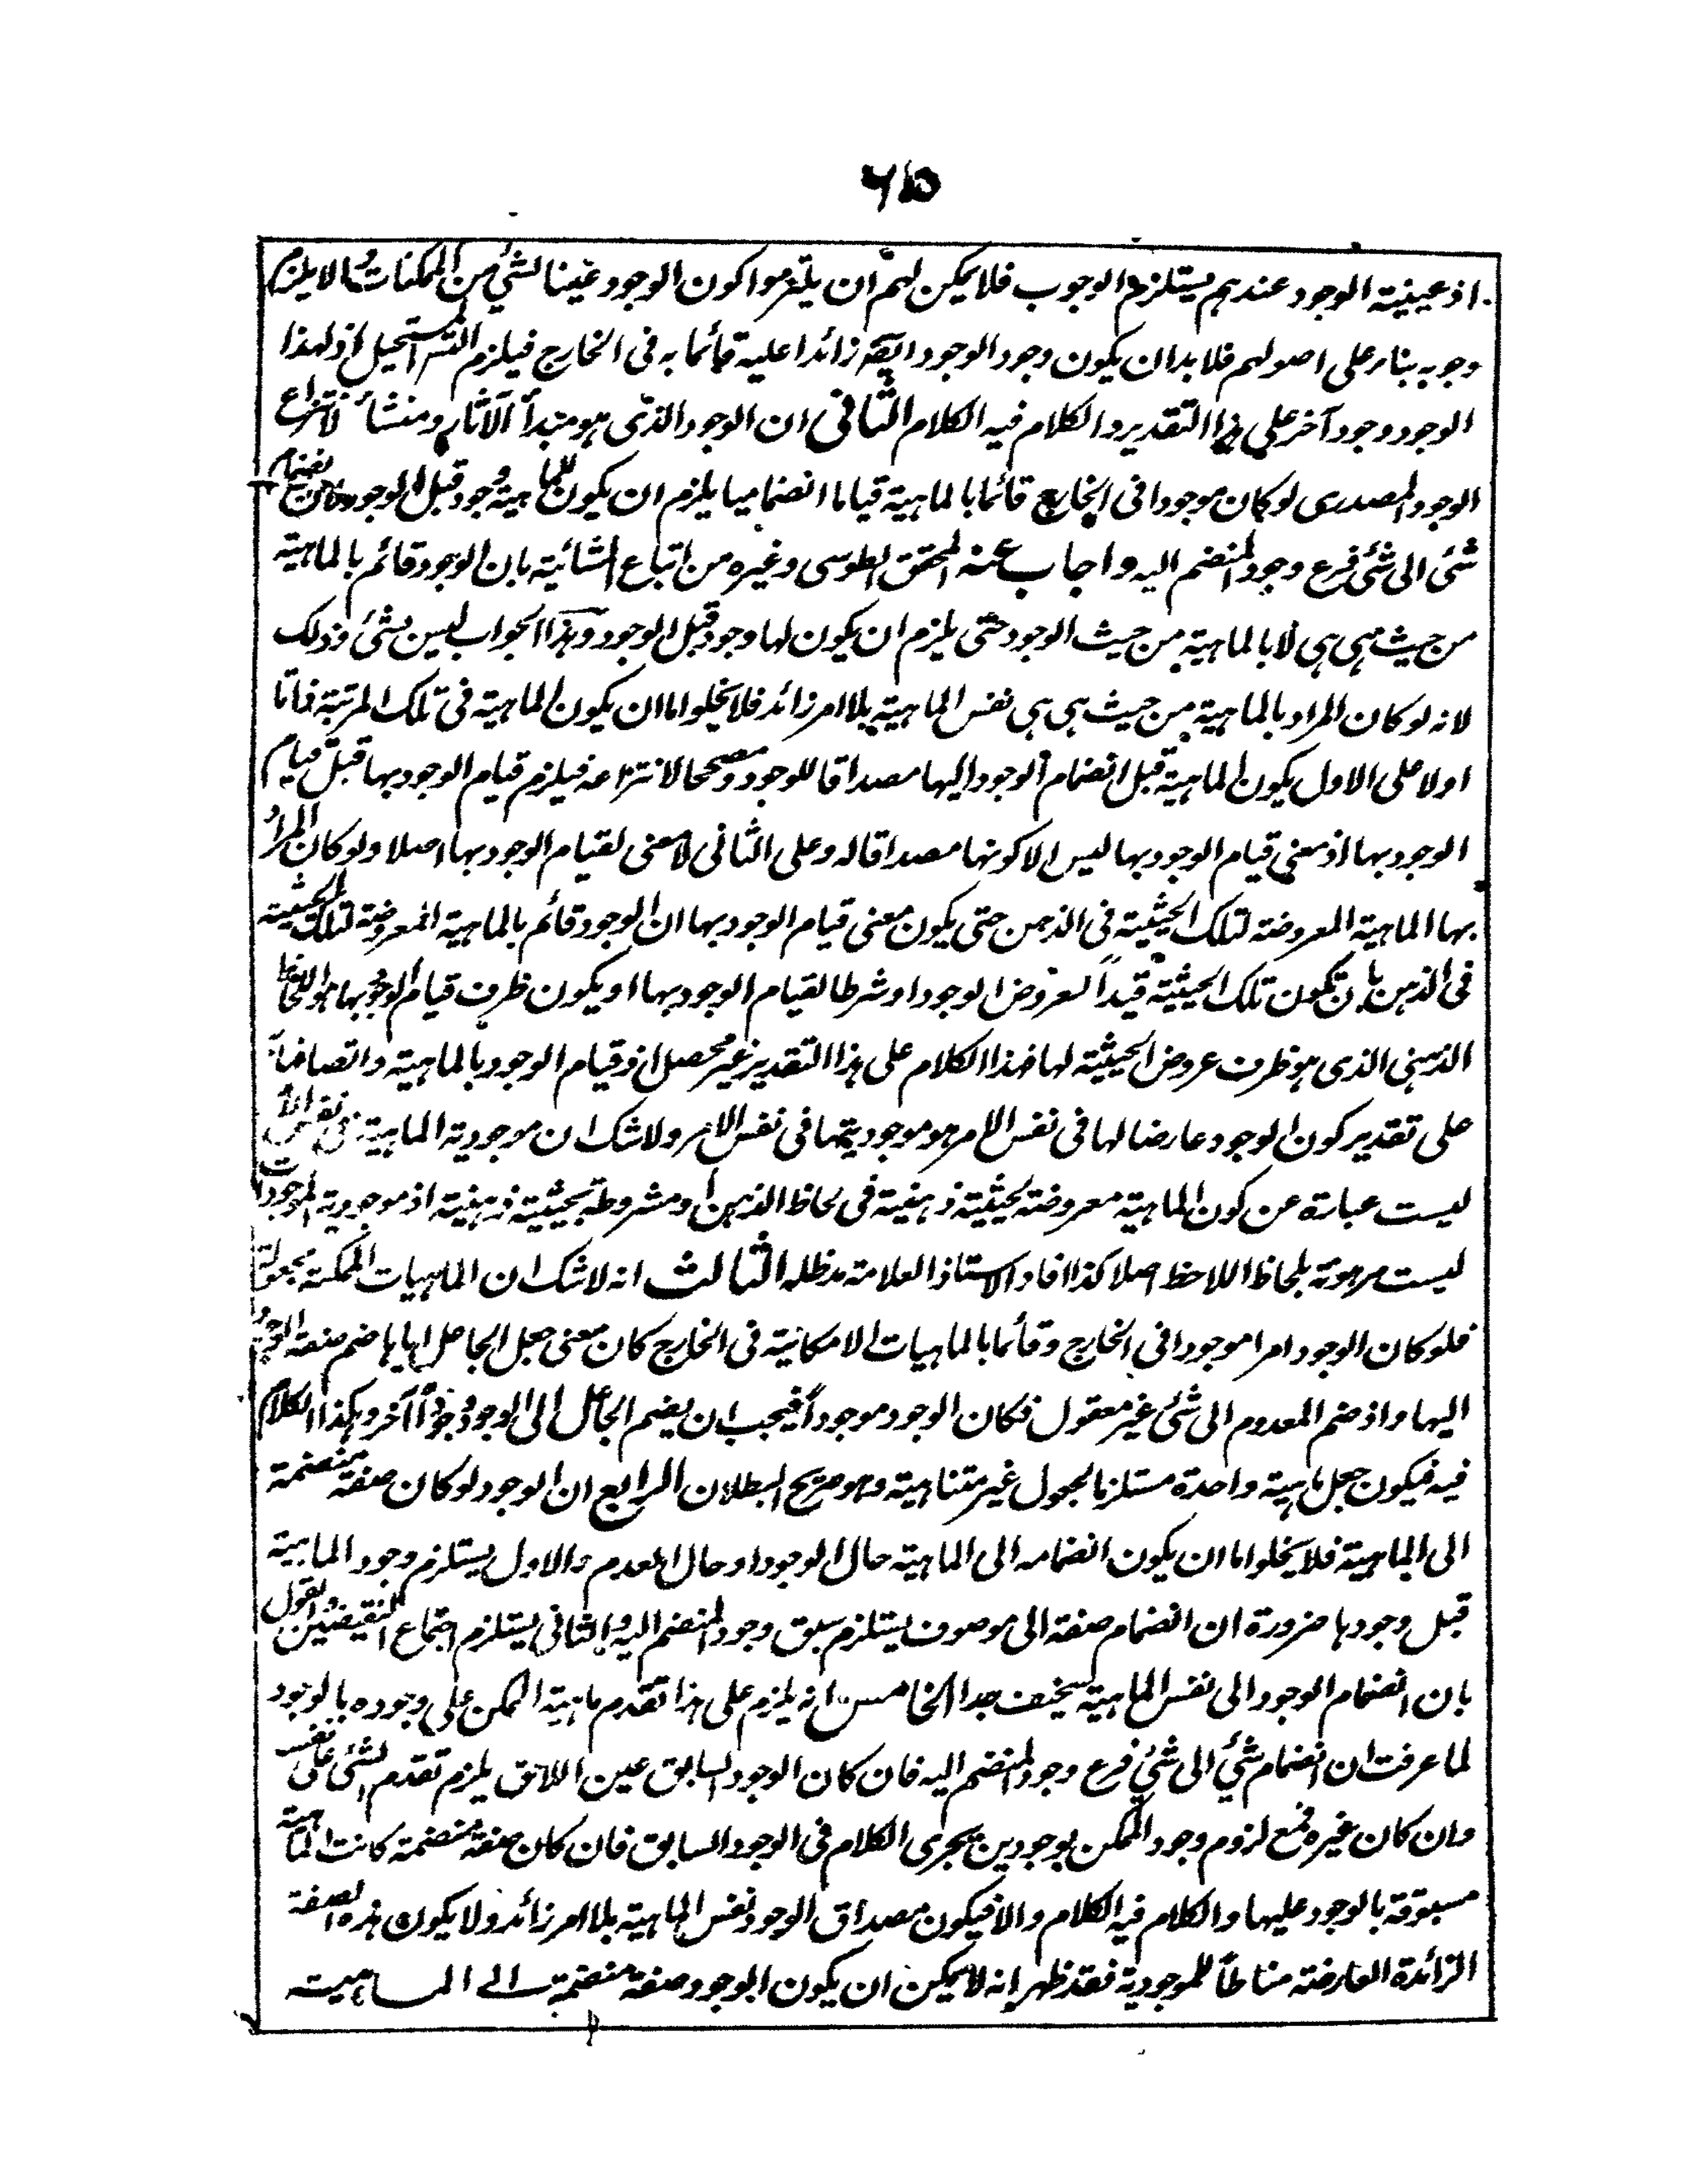 ٦٥
اذ عينية الوجود عندهم يستلزم الوجوب فلا يمكن لهم ان يلتزموا كون الوجود عينا لشئ من الممكنات والا يلزم
وجوبه بناء على اصولهم فلا بد ان يكون وجود الوجود ايضا زائدا عليه قائما به فى الخارج فيلزم التس المستحيل اذ لهذا
الوجود وجود آخر على هذا التقدير والكلام فيه الكلام الثانى ان الوجود الذى هو مبدأ الآثار ومنشأ لانتزاع
الوجود المصدرى لو كان موجودا فى الخارج قائما بالماهية قياما انضماميا يلزم ان يكون للماهية وجود قبل الوجود لان انضمام
شئ الى شئ فرع وجود المنضم اليه واجاب عنه المحقق الطوسى وغيره من اتباع المشائية بان الوجود قائم بالماهية
من حيث هى هى لا بالماهية من حيث الوجود حتى يلزم ان يكون لها وجود قبل الوجود وهذا الجواب ليس بشئ وذلك
لانه لو كان المراد بالماهية من حيث هى هى نفس الماهية بلا امر زائد فلا يخلو اما ان يكون الماهية فى تلك المرتبة ذاتا
اولا على الاول يكون الماهية قبل انضمام الوجود اليها مصداقا للوجود ومصححا لانتزاعه فيلزم قيام الوجود بها قبل قيام
الوجود بها اذ معنى قيام الوجود بها ليس الا كونها مصداقا له وعلى الثانى لا معنى لقيام الوجود بها اصلا ولو كان المراد
بها الماهية المعروضة لتلك الحيثية فى الذهن حتى يكون معنى قيام الوجود بها ان الوجود قائم بالماهية المعروضة لتلك الحيثية
فى الذهن بان تكون تلك الحيثية قيداً لعروض الوجود او شرطا لقيام الوجود بها او يكون ظرف قيام الوجود بها هو اللحاظ
الذهنى الذى هو ظرف عروض الحيثية لها فهذا الكلام على هذا التقدير غير محصل اذ قيام الوجود بالماهية واتصافها به
على تقدير كون الوجود عارضا لها فى نفس الامر هو موجوديتها فى نفس الامر ولا شك ان موجودية الماهية فى نفس الامر
ليست عبارة عن كون الماهية معروضة بحيثية ذهنية فى لحاظ الذهن او مشروطة بحيثية ذهنية اذ موجودية الموجودات
ليست مرهونة بلحاظ اللاحظ اصلا كذا افاد الاستاذ العلامة مدظله الثالث انه لا شك ان الماهيات الممكنة مجعولة
فلو كان الوجود امرا موجودا فى الخارج وقائما بالماهيات الامكانية فى الخارج كان معنى جعل الجاعل اياها ضم صفة الوجود
اليها واذ ضم المعدوم الى شئ غير معقول فكان الوجود موجوداً فيجب ان يضم الجاعل الى الوجود وجوداً آخر وهكذا الكلام
فيه فيكون جعل ماهية واحدة مستلزما لجعول غير متناهية وهو صريح البطلان الرابع ان الوجود لو كان صفة منضمة
الى الماهية فلا يخلو اما ان يكون انضمامه الى الماهية حال الوجود او حال العدم والاول يستلزم وجود الماهية
قبل وجودها ضرورة ان انضمام صفة الى موصوف يستلزم سبق وجود المنضم اليه والثانى يستلزم اجتماع النقيضين والقول
بان انضمام الوجود الى نفس الماهية سخيف جدا الخامس انه يلزم على هذا تقدم ماهية الممكن على وجوده بالوجود
لما عرفت ان انضمام شئ الى شئ فرع وجود المنضم اليه فان كان الوجود السابق عين اللاحق يلزم تقدم الشئ على نفسه
وان كان غيره فمع لزوم وجود الممكن بوجودين يجرى الكلام فى الوجود السابق فان كان صفة منضمة كانت الماهية
مسبوقة بالوجود عليها والكلام فيه الكلام والا فيكون مصداق الوجود نفس الماهية بلا امر زائد ولا يكون هذه الصفة
الزائدة العارضة مناطاً للموجودية فقد ظهر انه لا يمكن ان يكون الوجود صفة منضمة الى الماهية